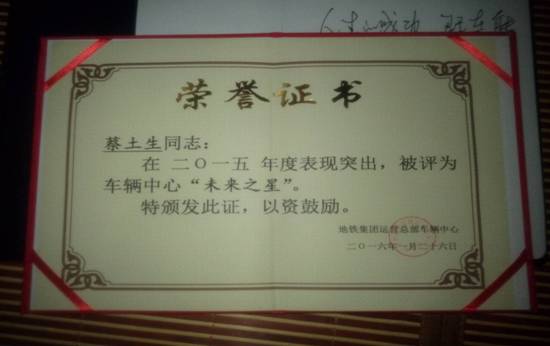 人生的成功
荣誉证书
蔡土生同志：
在 二〇一五 年度表现突出，被评为
车辆中心“未来之星”。
特颁发此证，以资鼓励。
地铁集团运营总部车辆中心
二〇一六年一月二十六日